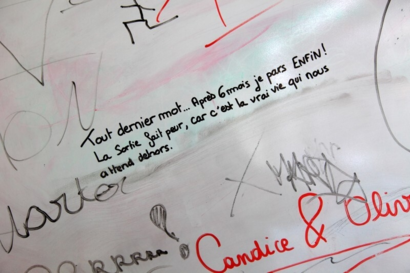 Tout dernier mot... Après 6 mois je pars ENFIN!
La sortie fait peur, car c'est la vrai vie qui nous
attend dehors.
Candice & Oliv